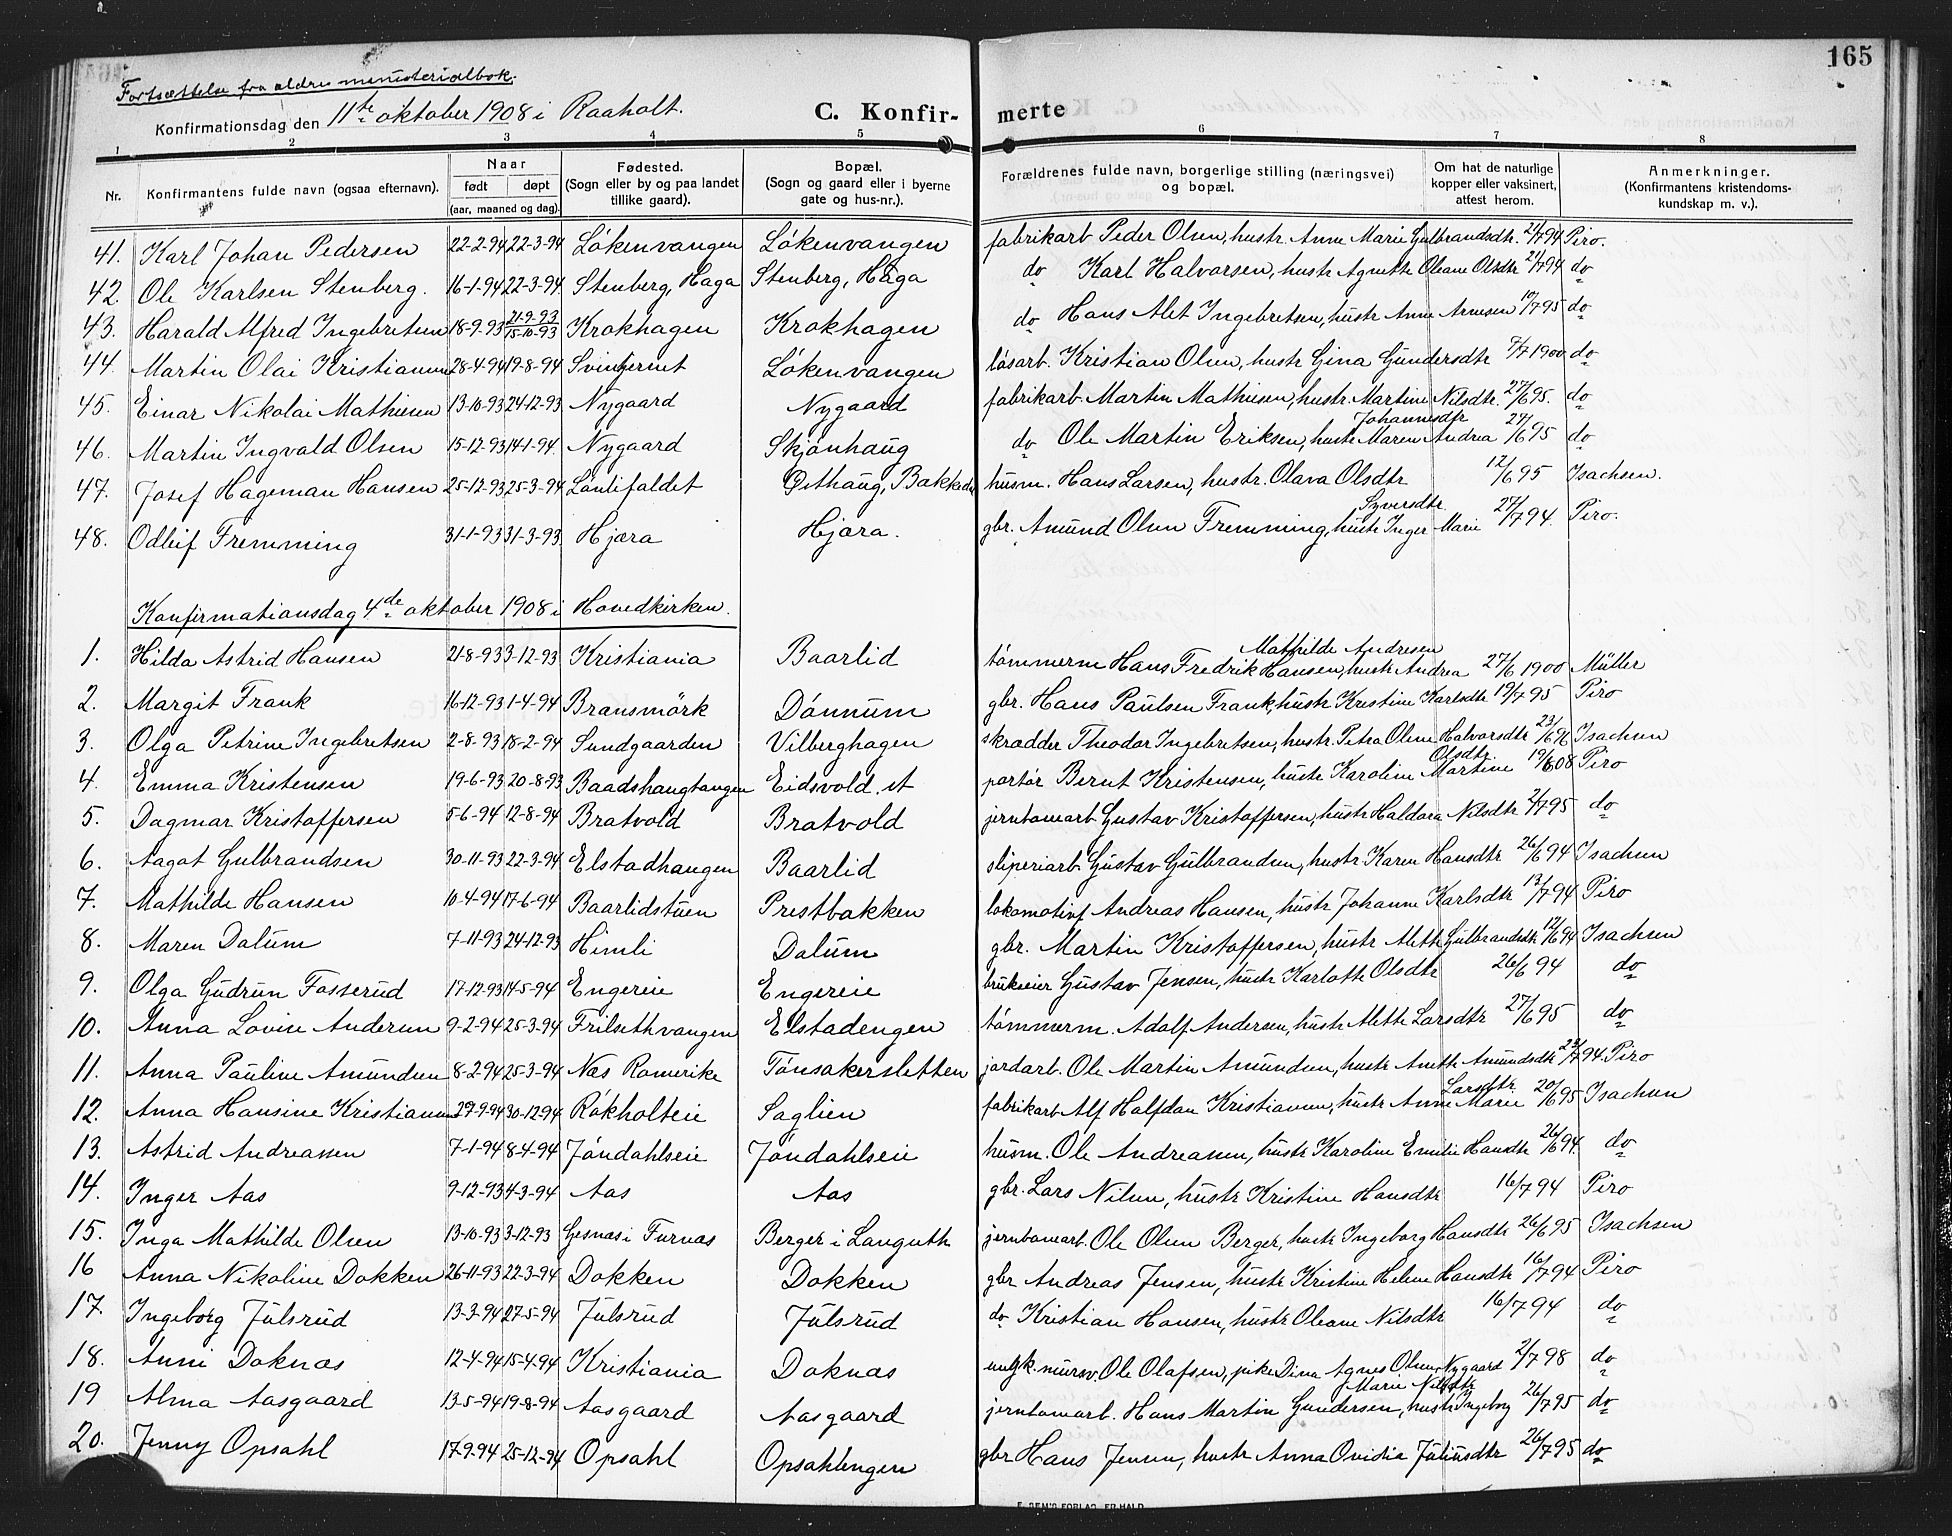 165
Fortsættelse fra ældre ministerialbok.
Konfirmationsdag den 11te oktober 1908 i Raaholt.
C. Konfir- merte
1 2 3 4 5 6 7 8
Nr. Konfirmantens fulde navn (ogsaa efternavn). Naar født døpt (aar, maaned og dag). Fødested. (Sogn eller by og paa landet tillike gaard). Bopæl. (Sogn og gaard eller i byerne gate og hus-nr.). Forældrenes fulde navn, borgerlige stilling (næringsvei) og bopæl. Om hat de naturlige kopper eller vaksinert, atfest herom. Anmerkninger. (Konfirmantens kristendoms- kundskap m. v.).
41. Karl Johan Pedersen 22-2-94 22-3-94 Løkenvangen Løkenvangen fabrikarb Peder Olsen, hustr. Anne Marie Gulbrandsdtr. 2/7 94 Piro.
42 Ole Karlsen Stenberg. 16-1-94 22-3-94 Stenberg, Haga Stenberg, Haga do Karl Halvorsen, hustr Agnethe Oleane Olsdtr 2/7 94 do
43. Harald Alfred Ingebretsen 18-9-93 21-9-93 15-10-93 Krokhagen Krokhagen do Hans Alet Ingebretsen, hustr Anne Arnesen 10/7 95 do
44. Martin Olai Kristiansen 28-4-94 19-8-94 Løkenvangen løsarb. Kristian Olsen, hustr Gina Gundersdtr 7/7 1900 do
45. Einar Nikolai Mathiesen 13-10-93 24-12-93 Nygaard Nygaard fabrikarb. Martin Mathiesen, hustr. Martine Nilsdtr. 27/6 95. do
46. Martin Ingvald Olsen 15-12-93 14-1-94. Nygaard Skjønhaug do Ole Martin Eriksen, hustr Maren Andrea Johannesdtr 27/6 95 do
47. Josef Hageman Hansen 25-12-93 25-3-94 Løntifaldet Østhaug, Bakkedn husm. Hans Larsen, hustr. Olava Olsdtr 12/6 95 Isachsen.
48. Odleif Fremming 31-1-93 31-3-93. Hjæra Hjæra. gbr. Amund Olsen Fremming, hustr Inger Marie Syversdtr. 27/7 94. Piro.
Konfirmationsdag 4de oktober 1908 i Hovedkirken.
1. Hilda Astrid Hansen 21-8-93 3-12-93 Kristiania Baarlid tømmerm Hans Fredrik Hansen, hustr Andrea Mathilde Andresen 27/6 1900 Müller
2. Margit Frank 16-12-93 1-4-94 Bransmörk Dønnum gbr. Hans Paulsen Frank, hustr Kristine Karlsdtr 19/7 95 Piro
3. Olga Petrine Ingebretsen 2-8-93 18-2-94 Sundgaarden Vilberghagen skrædder Theodor Ingebretsen, hustr. Petra Oline Halvorsdtr 23/6 96 Isachsen
4. Emma Kristensen 19-6-93 20-8-93 Baadshaugtangen Eidsvold st portør Bernt Kristensen, hustr Karoline Martine Olsdtr 19/6 08 Piro
5. Dagmar Kristoffersen 5-6-94 12-8-94 Bratvold Bratvold jerntomtarb Gustav Kristoffersen, hustr Haldora Nilsdtr 2/7 95 do
6. Aagot Gulbrandsen 30-11-93 22-3-94 Elstadhaugen Baarlid sliperiarb Gustav Gulbrandsen, hustr Karen Hansdtr 26/6 94 Isachsen
7. Mathilde Hansen 10-4-94 17-6-94 Baarlidstuen Prestbakken lokomotivf Andreas Hansen, hustr Johanne Karlsdtr 13/7 94 Piro
8. Maren Dalum 7-11-93 24-12-93 Himli Dalum gbr. Martin Kristoffersen, hustr Alethe Gulbrandsdtr 12/6 94 Isachsen
9. Olga Gudrun Fosserud 17-12-93 14-5-94 Engereie Engereie brukeier Gustav Jensen, hustr Karlotte Olsdtr 26/6 94 do
10. Anna Lovise Andersen 9-2-94 25-3-94 Frilsethvangen Elstadengen tømmerm. Adolf Andersen, hustr Alette Larsdtr 27/6 95 do
11. Anna Pauline Amundsen 8-2-94 25-3-94 Næs Romerike Tønsakersletten jordarb. Ole Martin Amundsen, hustr Anethe Amundsdtr 23/7 94. Piro
12. Anna Hansine Kristiansen 27-9-94 30-12-94 Røkholteie Saglien fabrikarb Alf Halfdan Kristiansen, hustr Anne Marie Larsdtr 20/6 95 Isachsen
13. Astrid Andreassen 7-1-94 8-4-94 Jøndahlseie Jøndahlseie husm. Ole Andreassen, hustr Karoline Emilie Hansdtr 26/6 94. do
14. Inger Aas 9-12-93 4-3-94 Aas Aas gbr. Lars Nilsen, hustr Kristine Hansdtr 16/7 94 Piro
15. Inga Mathilde Olsen 13-10-93 3-12-93 Gesnæs i Furnæs Berger i Languth jerntomtarb. Ole Olsen Berger, hustr Ingeborg Hansdtr 26/6 95 Isachsen
16 Anna Nikoline Dokken 26-11-93 22-3-94 Dokken Dokken gbr Andreas Jensen, hustr Kristine Helene Hansdtr 16/7 94 Piro
17. Ingeborg Julsrud 13-3-94 27-5-94 Julsrud Julsrud do Kristian Hansen, hustr Oleane Nilsdtr 16/7 94 do
18. Anni Doknæs 12-4-94 15-4-94 Kristiania Doknæs ungk. mursv. Ole Olafsen, pike Dina Agnes Olsen Nygaard 2/7 98 do
19 Alma Aasgaard 13-5-94 19-8-94 Aasgaard Aasgaard jerntomtarb. Hans Martin Gundersen, hustr Ingeborg Marie Nilsdtr 26/7 95 do
20. Jenny Opsahl 17-9-94 25-12-94 Opsahl Opsahlengen gbr Hans Jensen, hustr Anna Ovidia Juliusdtr 26/7 95 do